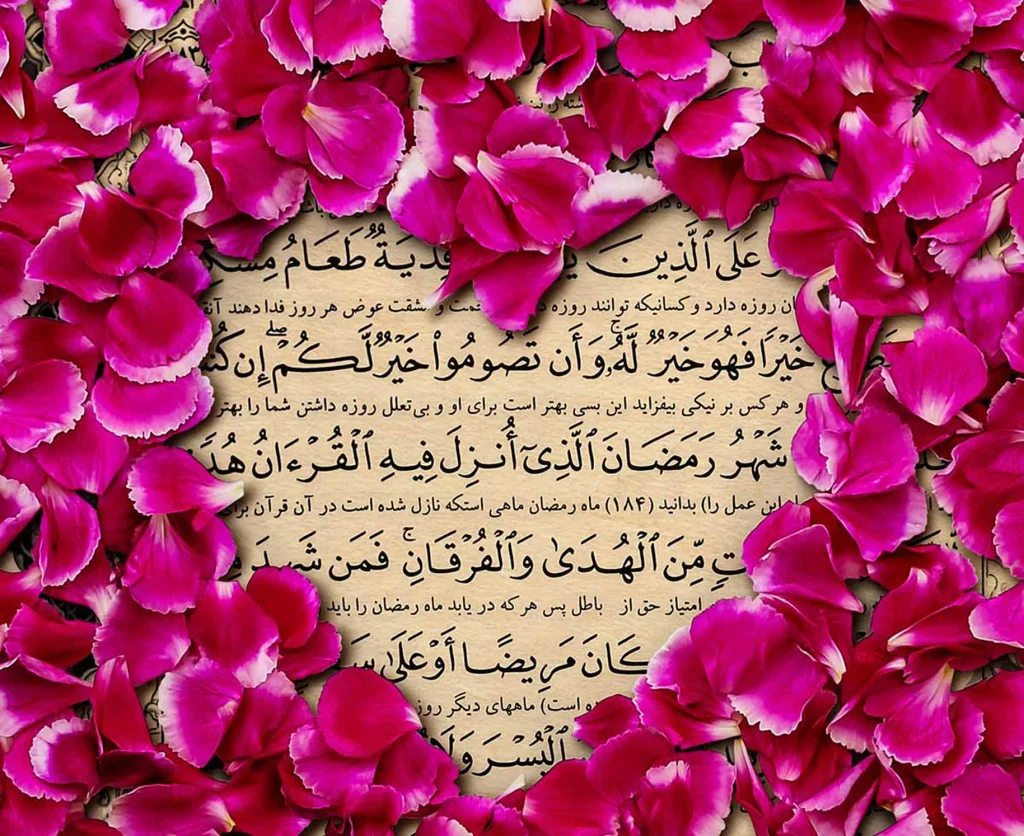 وَعَلَى ٱلَّذِينَ فِدْيَةٌ طَعَامُ
روزه دارد و کسانیکه توانند روزه و مشقت عوض هر روز فدا دهند
خَيْرًا فَهُوَ خَيْرٌ لَّهُۥ ۚ وَأَن تَصُومُوا۟ خَيْرٌ لَّكُمْ ۖ إِن
و هر کس بر نیکی بیفزاید این بسی بهتر است برای او و بی‌تعلل روزه داشتن شما را بهتر
شَهْرُ رَمَضَانَ ٱلَّذِىٓ أُنزِلَ فِيهِ ٱلْقُرْءَانُ
این عمل را) بدانید (۱۸۴) ماه رمضان ماهی استکه نازل شده است در آن قرآن
مِّنَ ٱلْهُدَىٰ وَٱلْفُرْقَانِ ۚ فَمَن شَهِدَ
امتیاز حق از باطل پس هر که در یابد ماه رمضان را باید
كَانَ مَرِيضًا أَوْ عَلَىٰ
است) ماههای دیگر روز
ٱلْيُسْرَ وَلَا